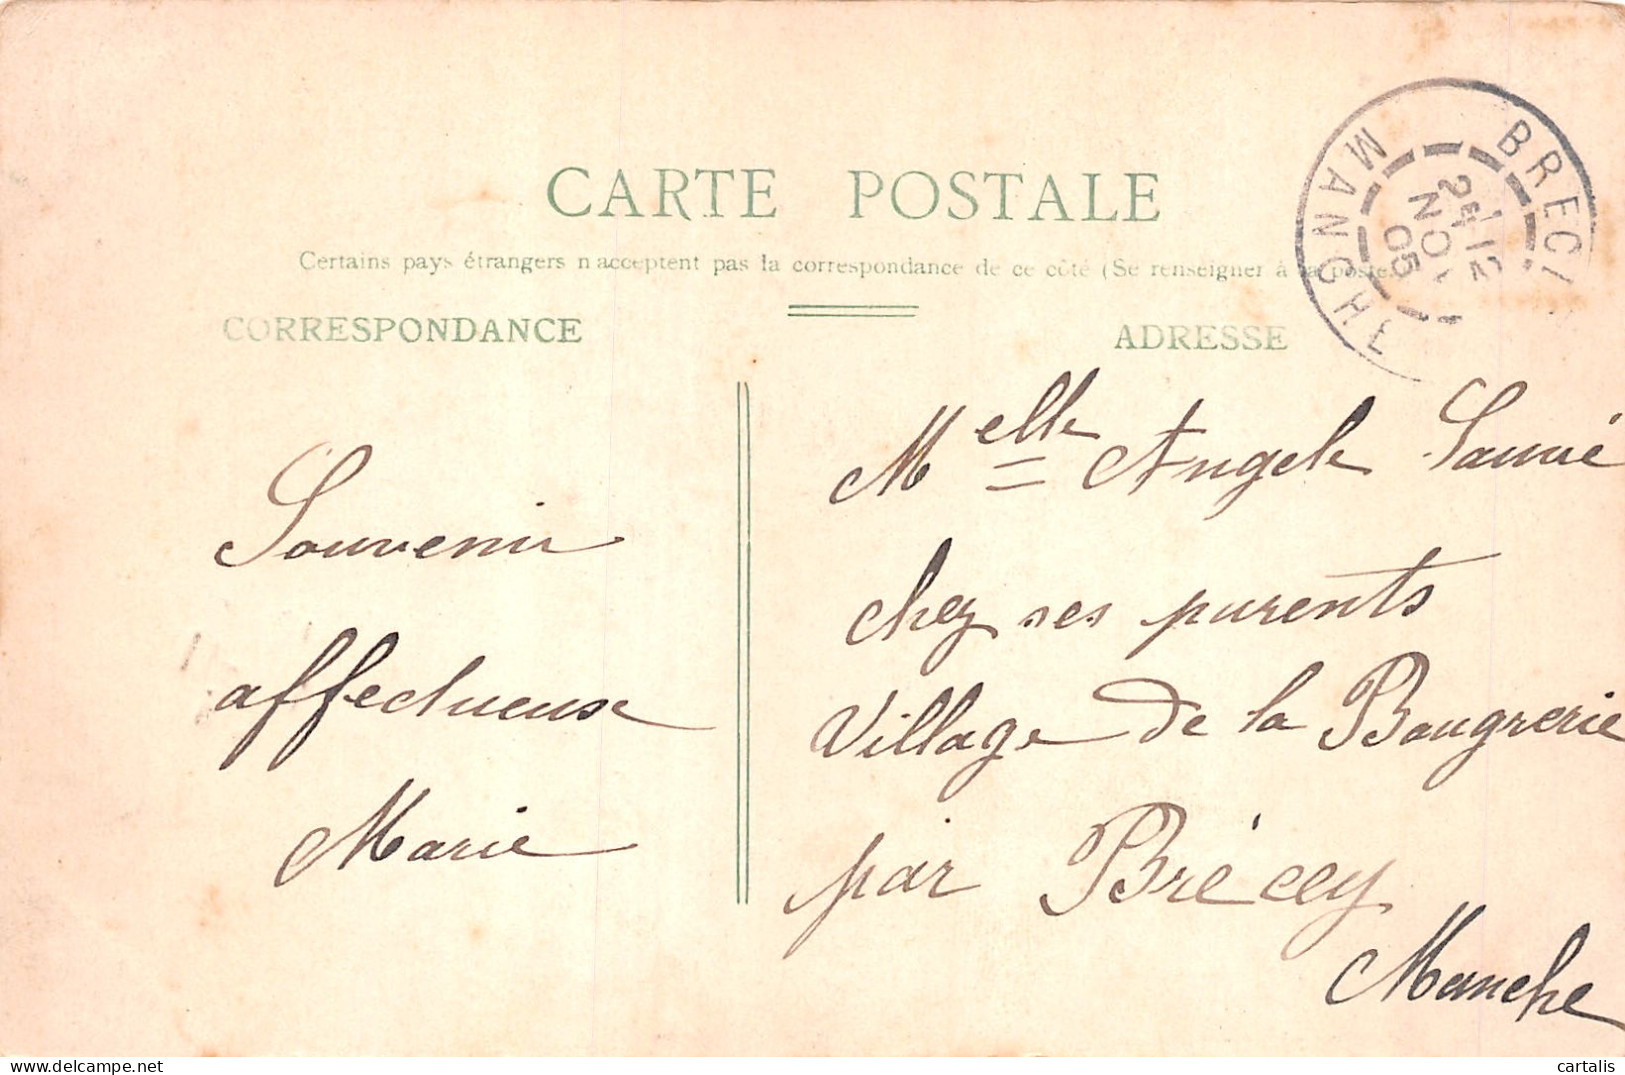 CARTE POSTALE
Certains pays étrangers n'acceptent pas la correspondance de ce côté (Se renseigner à la poste)
CORRESPONDANCE
ADRESSE
BRECE
MANCHE
12
NOV
05
Souvenir
affectueux
Marie
Melle Angele
chez ses parents
Village de la Baugrerie
par Brécey
Manche
cartalis